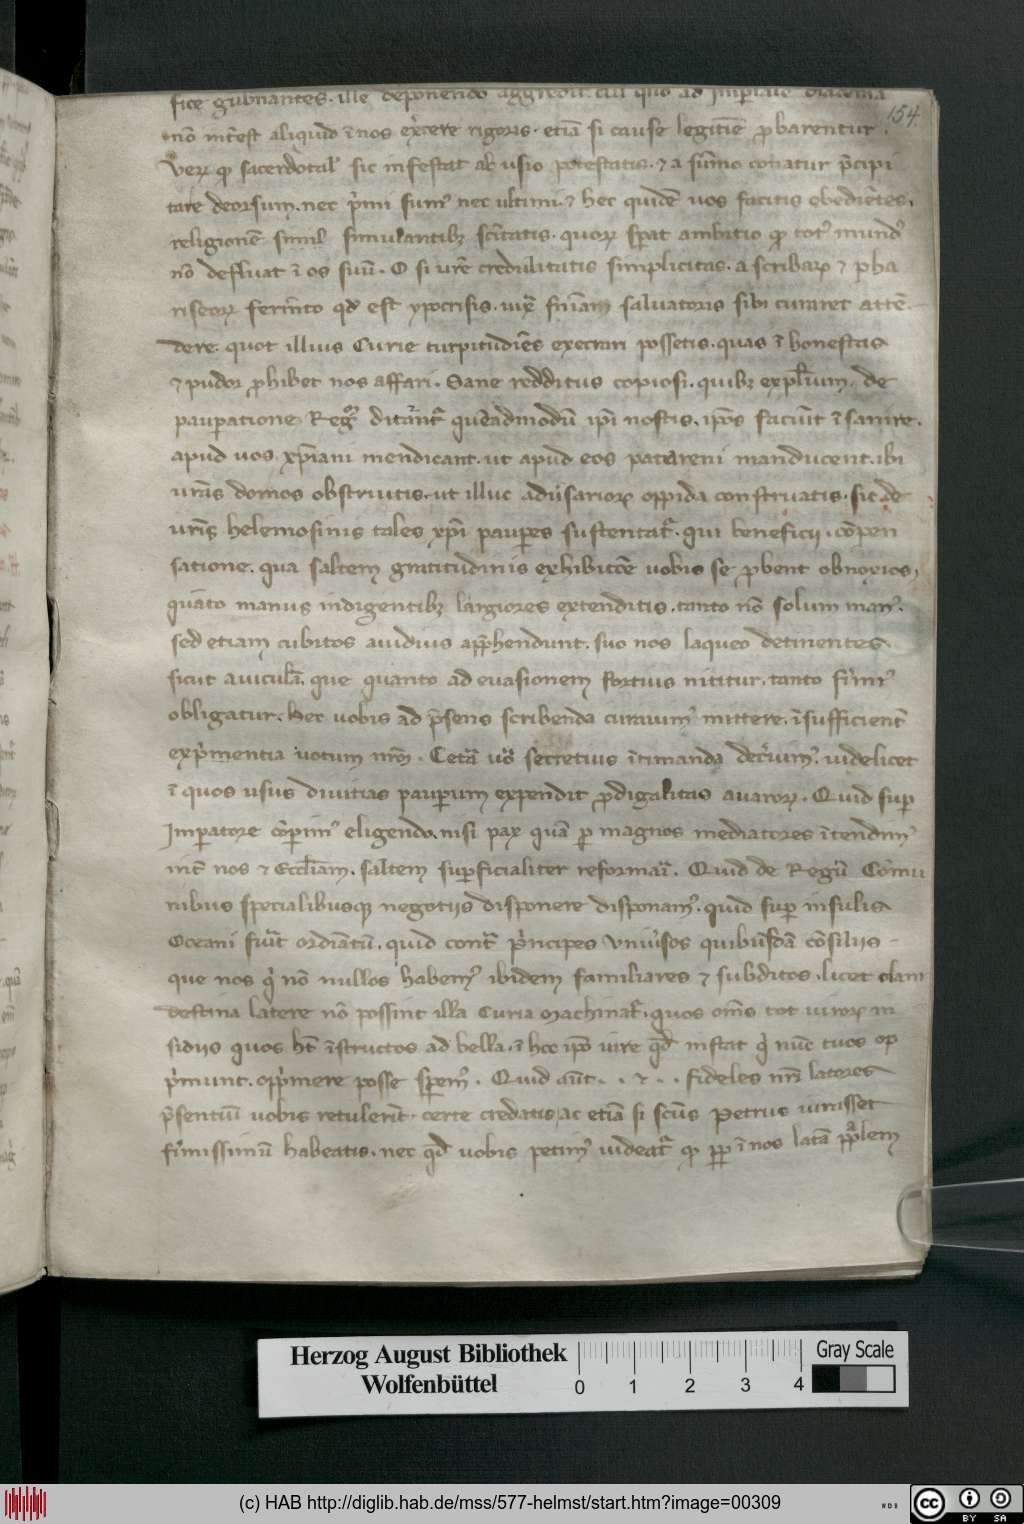 fice gubnantes. ille deponendo aggredit. cui quo ad Imperiale diadema
154.
nō intest aliquid ī nos exc̄ere rigoris. etiā si cause legitīe ꝓbarentur.
Verꝝ ꝙ sacerdotal' sic infestat abusio potestatis. ⁊ a sūmo conatur p̄cipi
tare deorsum. nec p̄mi sumꝰ nec ultimi. ⁊ hec quidē uos facitis obedīetes,
religionē simul simulantibꝫ scītatis. quoꝝ spat ambitio ꝙ totꝰ mundꝰ
nō defluat ī os suū. O si urē credulitatis simplicitas. a scribaꝝ ⁊ pha
riseoꝝ ferm̄to qđ est ypocrisis. iuxͣ sniam saluatoris sibi curaret attē
dere. quot illius Curie turpitudīes execrari possetis. quas ī honestas
⁊ pudor ꝓhibet nos affari. Sane redditus copiosi. quibꝫ de
pauꝑatione Reg ditant̄ queadmodū ipi nostis. ipos faciūt īsanire.
apud uos xpiani mendicant. ut apud eos patareni manducent. ibi
urās domos obstruitis. ut illuc adūsarioꝝ oppida construatis. sic de
urīs helemosinis tales xpi pauꝑes sustentat̄. qui beneficii. cōpen
satione. qua saltem gratitudinis exhibitōe uobis se ꝓbent obnoxios,
quāto manus indigentibꝫ largiores extenditis. tanto nō solum manꝰ.
sed etiam cubitos auidius app̄hendunt. suo nos laqueo detinentes.
sicut auiculā. que quanto ad euasionem fortius nititur. tanto firmiꝰ
obligatur. Hec uobis ad p̄sens scribenda curauimꝰ mittere. īsufficient̄
exp̄mentia uotum nrm̄. Cetā uo secretius ītimanda decreuimꝰ. uidelicet
ī quos usus diuitias pauꝑum expendit ꝓdigalitas auaroꝝ. Quid suꝑ
Imꝑatore coperimꝰ eligendo. nisi pax quā ꝑ magnos mediatores ītendimꝰ
int̄ nos ⁊ Eccliam. saltem suꝑficialiter reformari. Quid de Regū Cōmu
nibus specialibusqꝫ negotijs disponere disponamꝰ. quid suꝑ insulis
Oceani fuīt ordiatū. quid cont̄ p̄ncipes uniuersos quibusdā cōsiliis
que nos qi nō nullos habemꝰ ibidem familiares ⁊ subditos. licet clam
destina latere nō possint illa Curia machinat̄. quos oms̄ tot uiroꝝ in
sidiis quos ht̄ īstructos ad bella. ī hoc ipo uire qđ instat qi nūc tuos op
p̄munt. opp̄mere posse speramꝰ. Quid aūt. . ⁊ . . fideles nri latores
p̄sentiū uobis retulerīt. certe credatis, ac etiā si scūs Petrus iurasset
firmissimū habeatis. nec qđ uobis petimꝰ uideat̄ ꝙ ꝓp ī nos latā
Herzog August Bibliothek
Wolfenbüttel
0 1 2 3 4
Gray Scale
(c) HAB http://diglib.hab.de/mss/577-helmst/start.htm?image=00309
WDB
cc BY SA